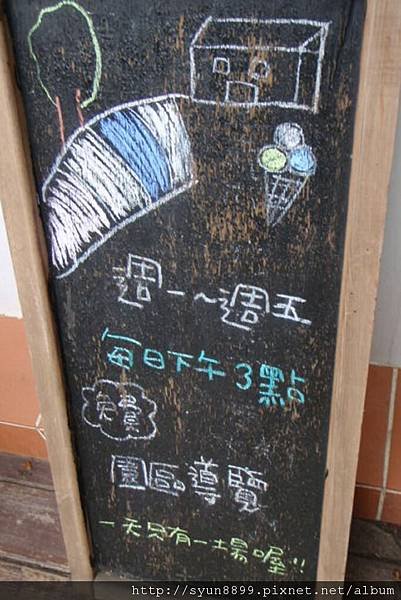 週一~週五
每日下午3點
免費
園區導覽
一天只有一場喔!!
http://syun8899.pixnet.net/album